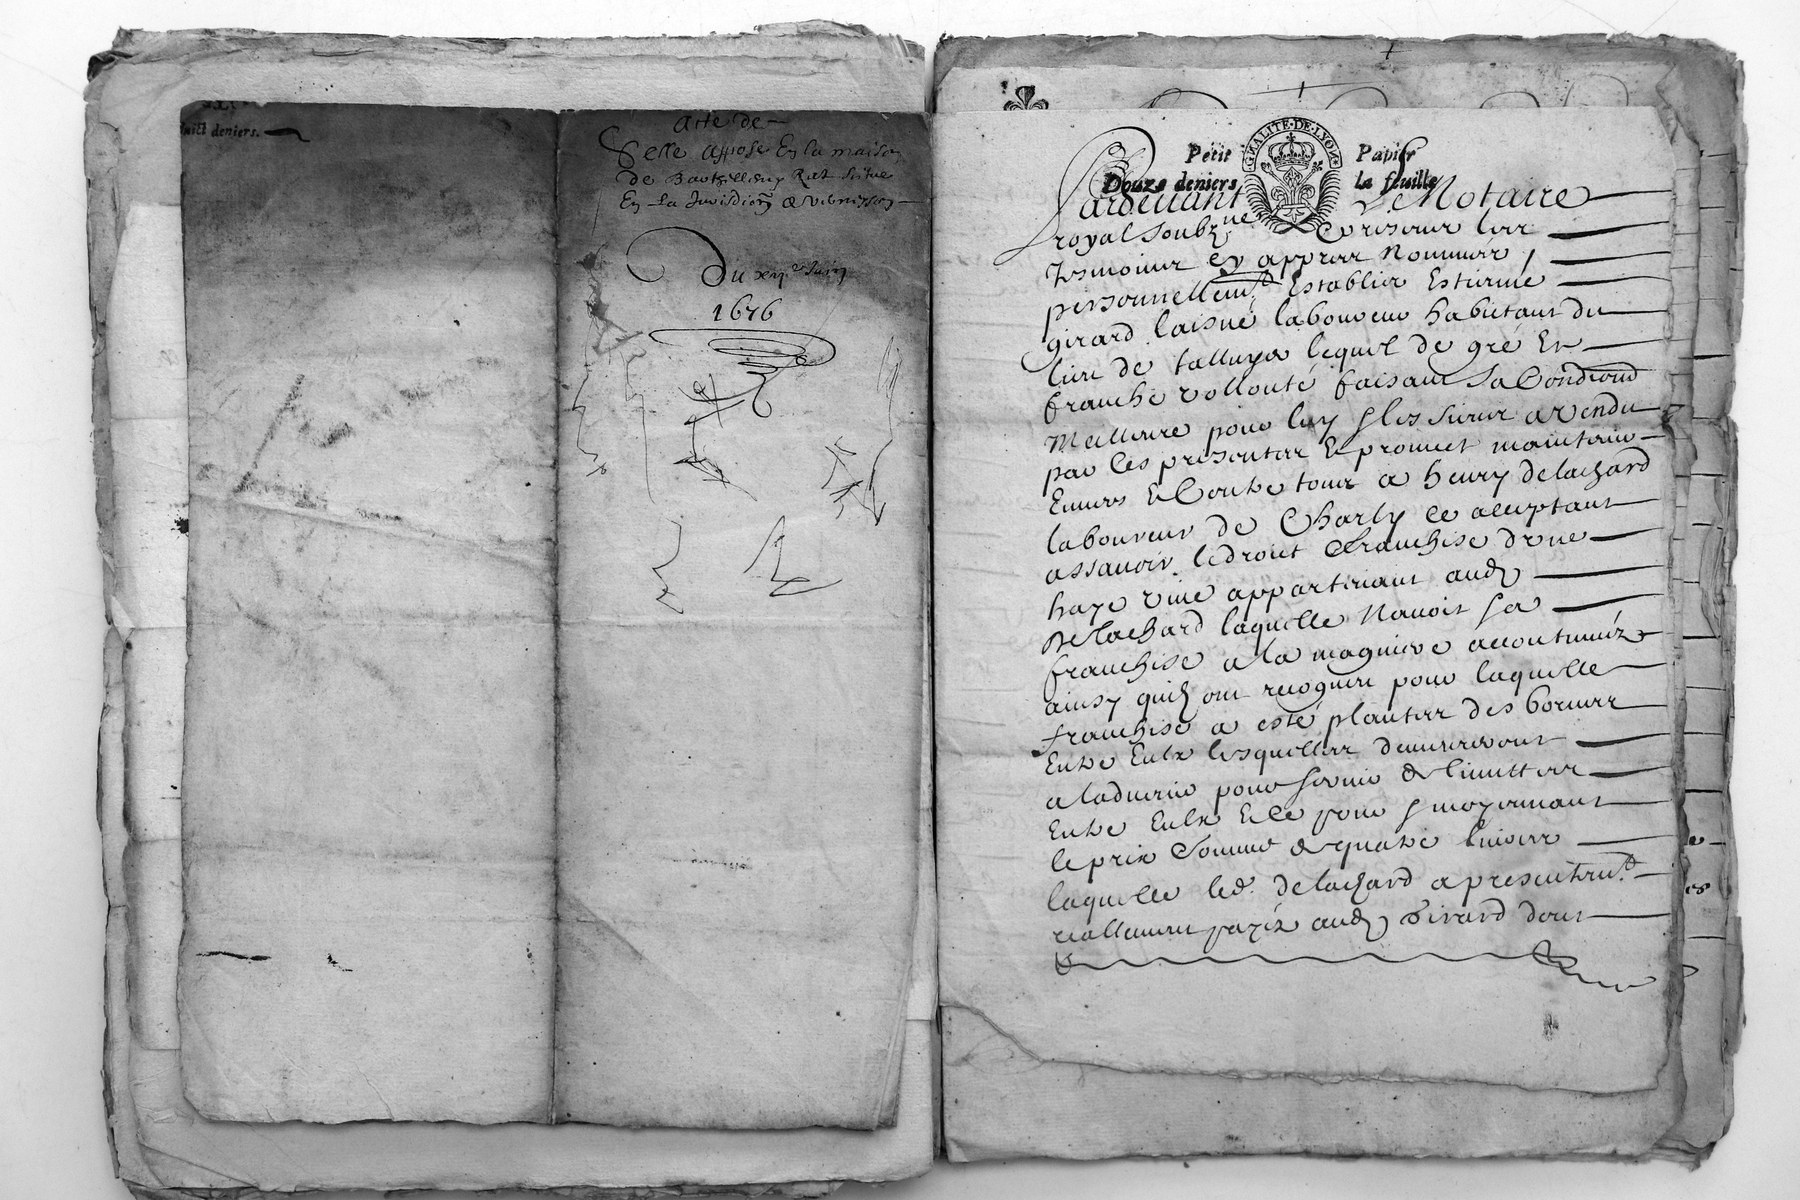 huict deniers.
Acte de
Selle apposé En la maison
de Barthellemy Rat située
En La Jurisdion de vernisson
Du xiije Juin
1676
GNALITE·DE·LYON
Petit Papier
Douze deniers La feuille
Pardeuant Le Notaire
royal Soubzne En presence des
tesmoins cy apprez Nommés
personnellemt Establis Estienne
girard laisné laboureur habitant du
lieu de talluyer lequel de gré En
franche vollonté faisant Sa Condiond
Meilleure pour luy & les sieurs a vendu
par Ces presentes Et promet maintenir
Enuers Et Contre tous a henry delachard
laboureur de Charly ce acceptant
assauoir le droict & franchise dvne
haye viue appartenant aud
Delachard laquelle Nauoit sa
franchise a la magniere accoutumée
ainsy quilz ont recogneu pour laquelle
franchise a esté planter des bornes
Entre Eulx lesquelles demeureront
a laduenir pour seruir de limittes
Entre Eulx Et ce pour & moyennant
le prix & somme de quatre liures
laquelle led. delachard a presentemt
reallement payée aud Girard dont